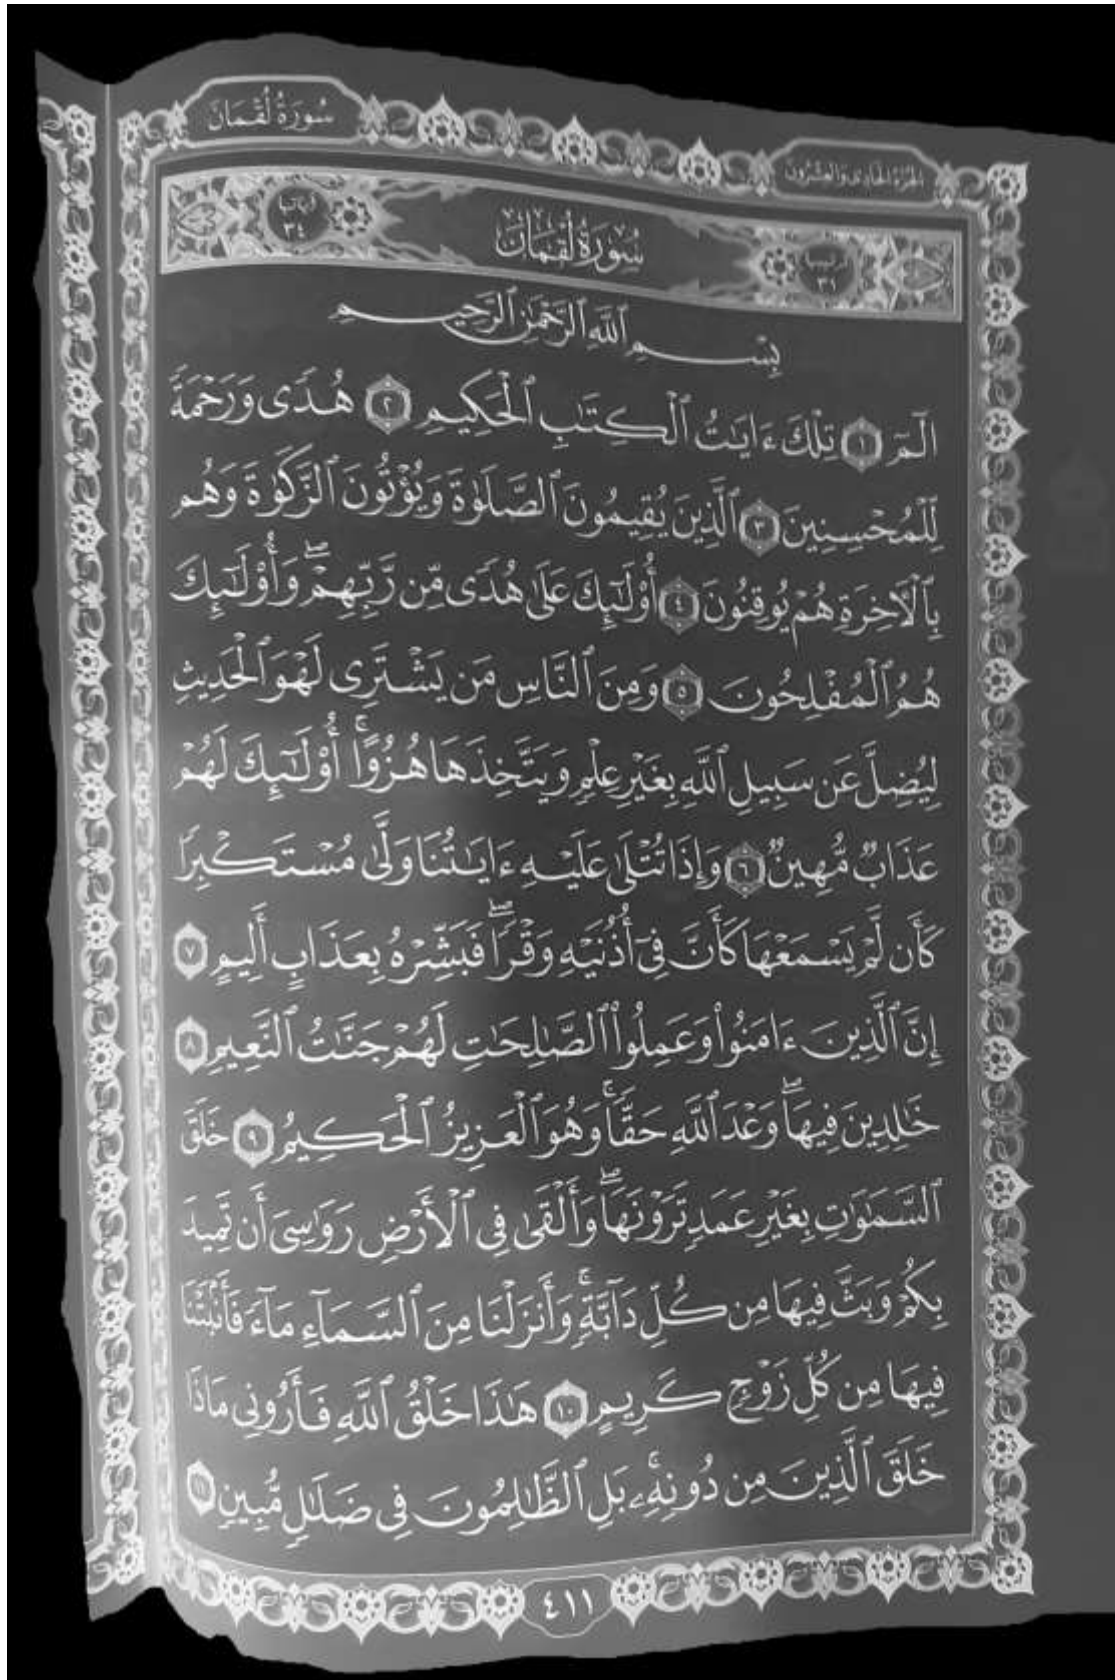 سُورَةُ لُقْمَانَ
الجُزْءُ الحَادِي وَالعِشْرُونَ
آياتها ٣٤
سُورَةُ لُقْمَانَ
ترتيبها ٣١
بِسْمِ ٱللَّهِ ٱلرَّحْمَٰنِ ٱلرَّحِيمِ
الٓمٓ ١ تِلْكَ ءَايَٰتُ ٱلْكِتَٰبِ ٱلْحَكِيمِ ٢ هُدًى وَرَحْمَةً
لِّلْمُحْسِنِينَ ٣ ٱلَّذِينَ يُقِيمُونَ ٱلصَّلَوٰةَ وَيُؤْتُونَ ٱلزَّكَوٰةَ وَهُم
بِٱلْأٓخِرَةِ هُمْ يُوقِنُونَ ٤ أُو۟لَٰٓئِكَ عَلَىٰ هُدًى مِّن رَّبِّهِمْۖ وَأُو۟لَٰٓئِكَ
هُمُ ٱلْمُفْلِحُونَ ٥ وَمِنَ ٱلنَّاسِ مَن يَشْتَرِى لَهْوَ ٱلْحَدِيثِ
لِيُضِلَّ عَن سَبِيلِ ٱللَّهِ بِغَيْرِ عِلْمٍ وَيَتَّخِذَهَا هُزُوًاۚ أُو۟لَٰٓئِكَ لَهُمْ
عَذَابٌ مُّهِينٌ ٦ وَإِذَا تُتْلَىٰ عَلَيْهِ ءَايَٰتُنَا وَلَّىٰ مُسْتَكْبِرًا
كَأَن لَّمْ يَسْمَعْهَا كَأَنَّ فِىٓ أُذُنَيْهِ وَقْرًاۖ فَبَشِّرْهُ بِعَذَابٍ أَلِيمٍ ٧
إِنَّ ٱلَّذِينَ ءَامَنُوا۟ وَعَمِلُوا۟ ٱلصَّٰلِحَٰتِ لَهُمْ جَنَّٰتُ ٱلنَّعِيمِ ٨
خَٰلِدِينَ فِيهَاۖ وَعْدَ ٱللَّهِ حَقًّاۚ وَهُوَ ٱلْعَزِيزُ ٱلْحَكِيمُ ٩ خَلَقَ
ٱلسَّمَٰوَٰتِ بِغَيْرِ عَمَدٍ تَرَوْنَهَاۖ وَأَلْقَىٰ فِى ٱلْأَرْضِ رَوَٰسِىَ أَن تَمِيدَ
بِكُمْ وَبَثَّ فِيهَا مِن كُلِّ دَآبَّةٍۚ وَأَنزَلْنَا مِنَ ٱلسَّمَآءِ مَآءً فَأَنۢبَتْنَا
فِيهَا مِن كُلِّ زَوْجٍ كَرِيمٍ ١٠ هَٰذَا خَلْقُ ٱللَّهِ فَأَرُونِى مَاذَا
خَلَقَ ٱلَّذِينَ مِن دُونِهِۦۚ بَلِ ٱلظَّٰلِمُونَ فِى ضَلَٰلٍ مُّبِينٍ ١١
٤١١